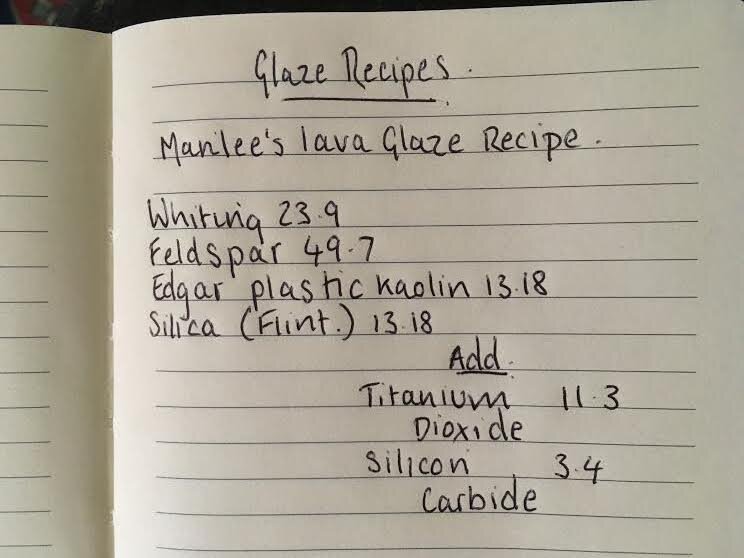 Glaze Recipes.
Marilee's lava Glaze Recipe.
Whiting 23.9
Feldspar 49.7
Edgar plastic kaolin 13.18
Silica (Flint.) 13.18
Add.
Titanium 11.3
Dioxide
Silicon 3.4
Carbide